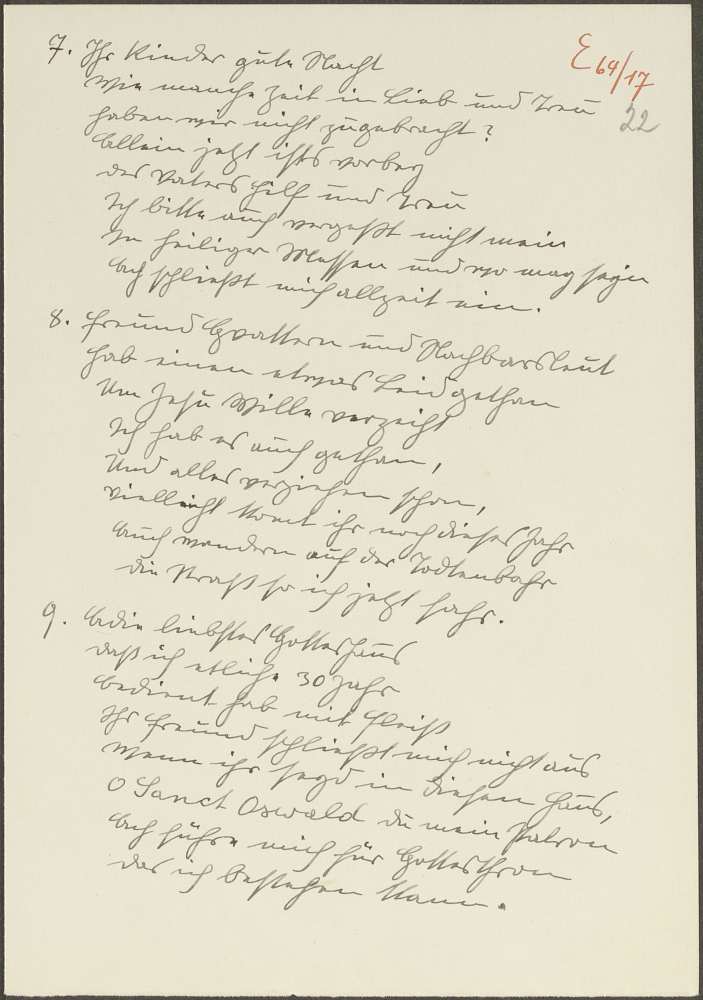 E 64/17
22
7. Ihr Kinder gute Nacht
Wie manche Zeit in Lieb und Treu
haben wir nicht zugebracht?
Allein jetzt ists vorbey
des Vaters Hilf und Treu
Ich bitte auch vergeßt nicht mein
In heiliger Messen und wo mag seyn
Ach schließt mich allzeit ein.
8. Freund Gvattern und Nachbarsleut
hab einen etwas Leid gethan
Um Jesu Wille verzeiht
Ich hab es auch gethan,
Und alles verziehen schon,
Vielleicht komt ihr noch dieses Jahr
Auch wandern auf der Todtenbahr
die Straß so ich jetzt fahr.
9. Adie liebstes Gotteshaus
daß ich etliche 30 Jahr
bedient hab mit Fleiß
Ihr Freund schließt mich nicht aus
wenn ihr seyd in diesen Haus,
O Sanct Oswald du mein Patron
Ach führe mich für Gottesthron
das ich bestehen kann.